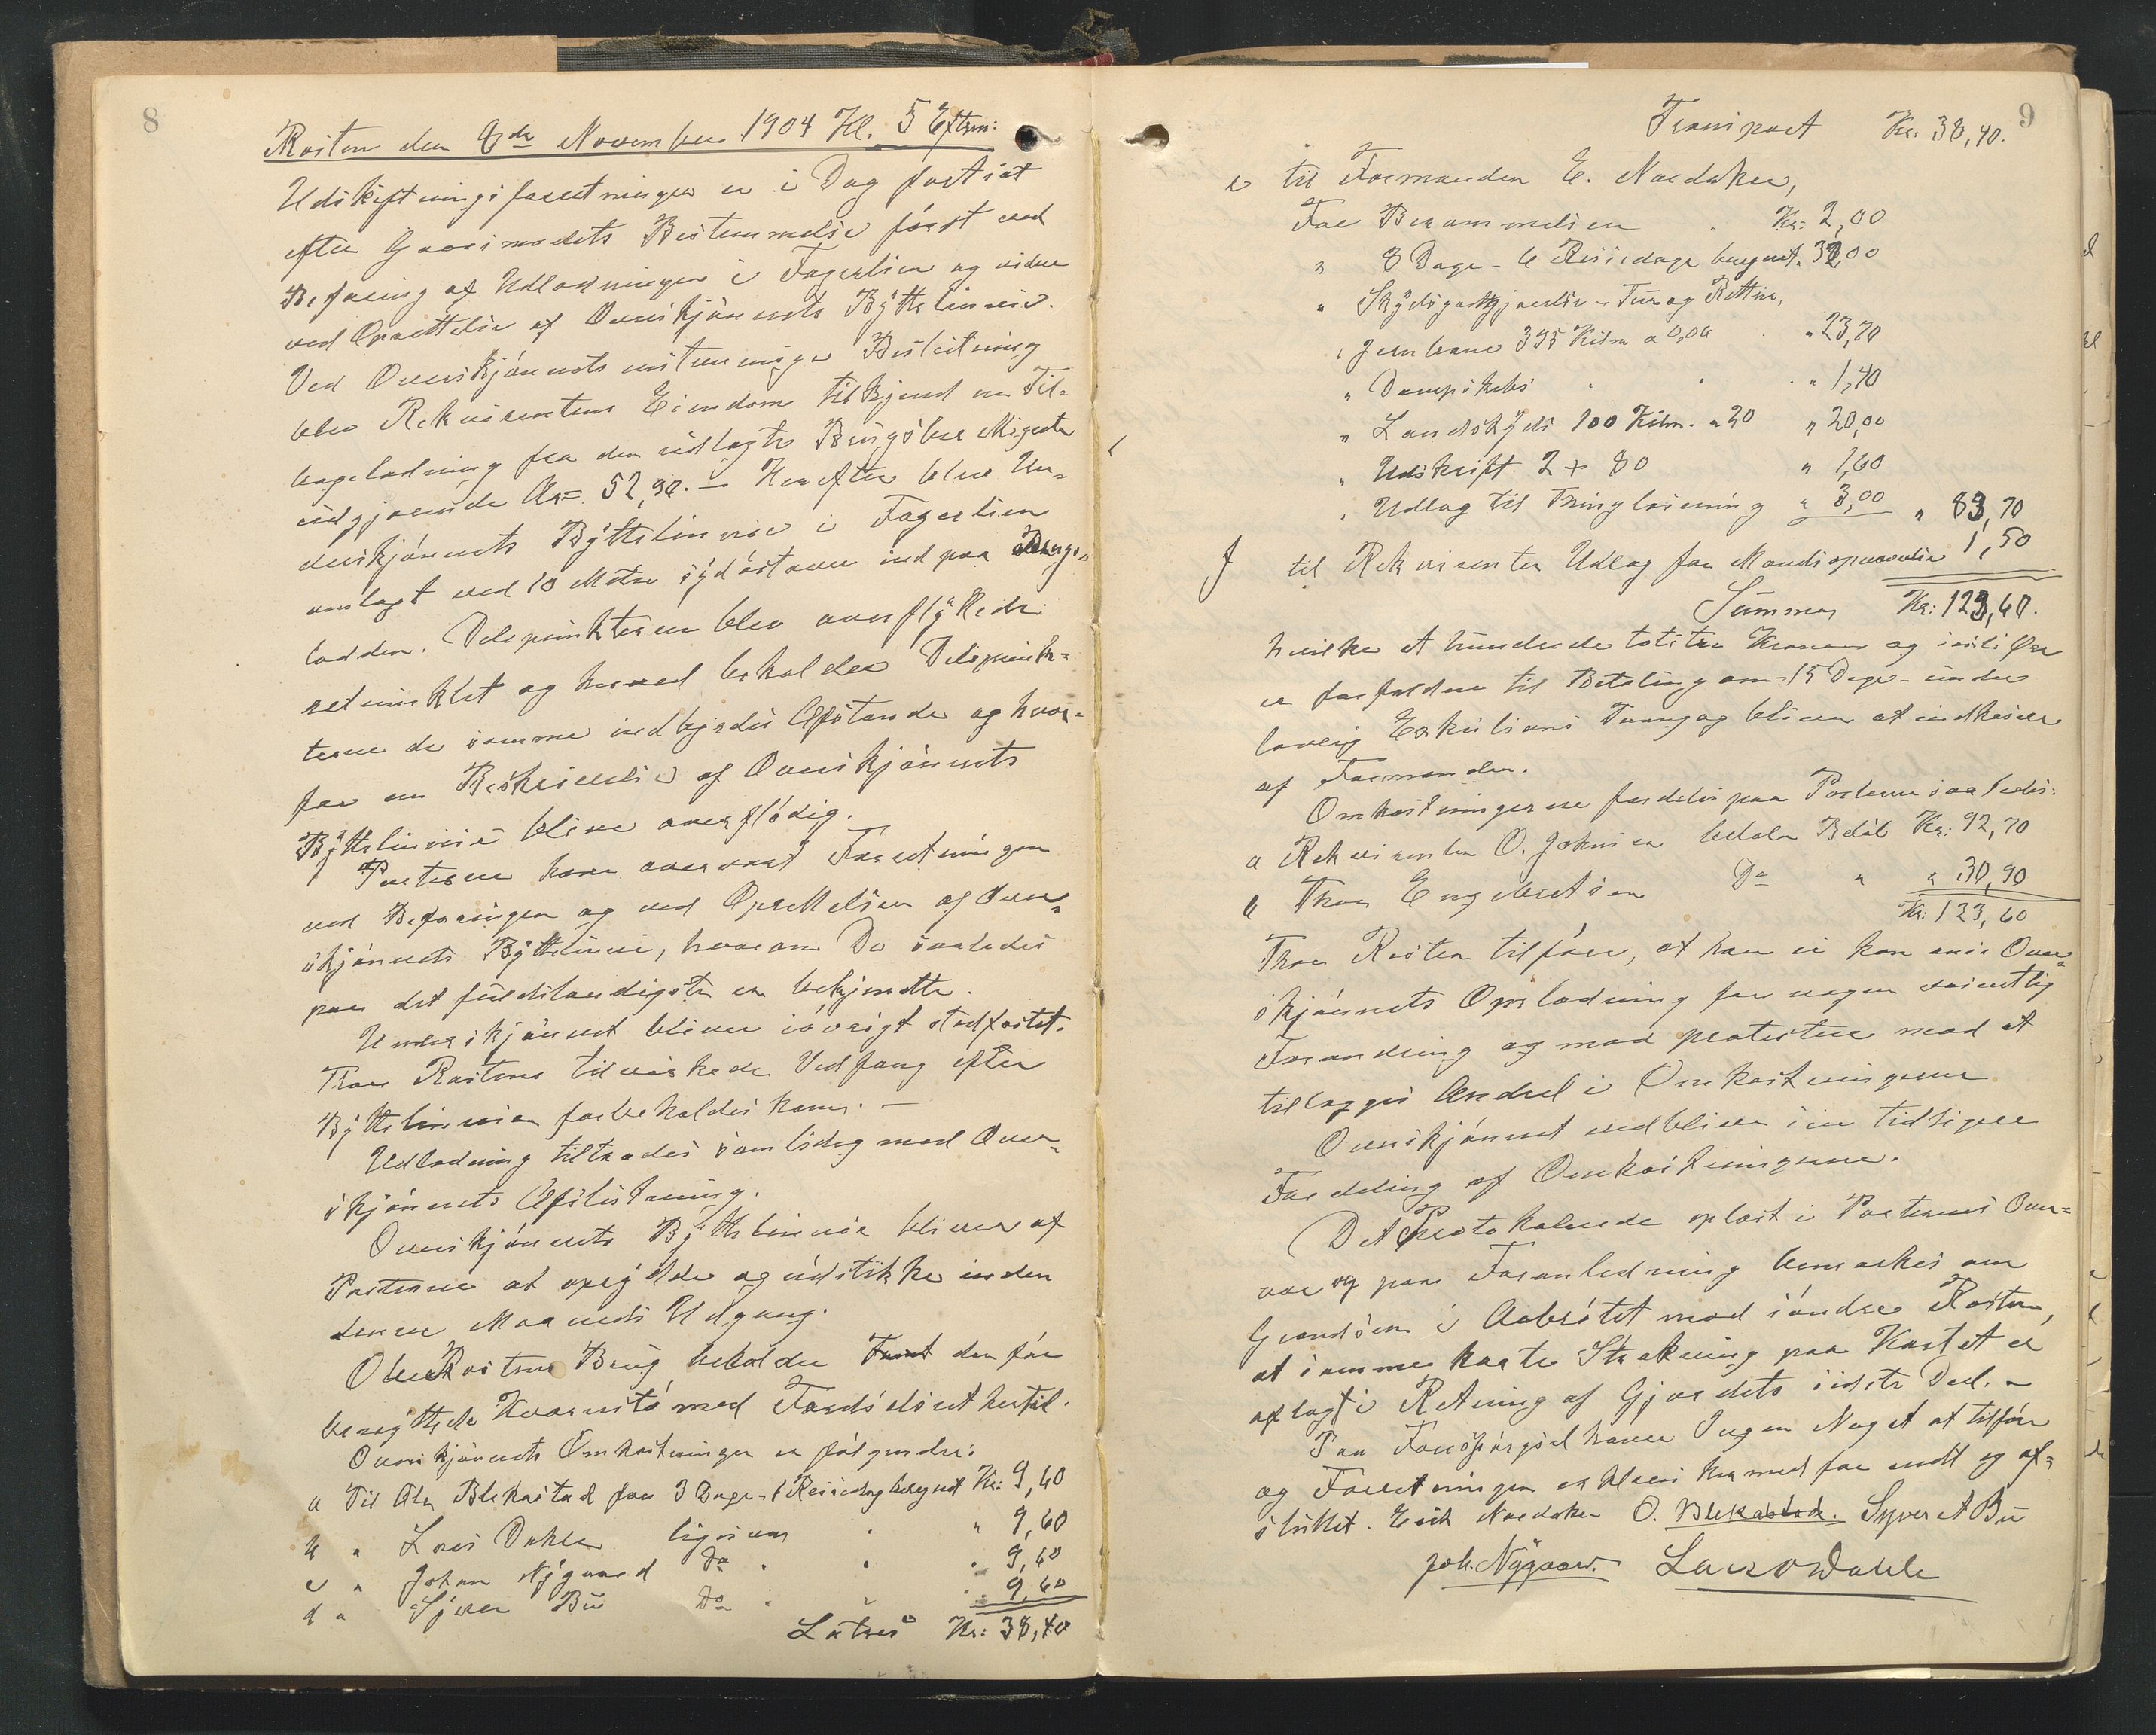 8
Rosten den 8de November 1904 Kl. 5 Eftrm:
Udskiftningsforretningen er i Dag fortsat
efter Grænsemødets Bestemmelse først ved
Befaring af Udlodningen i Fagerlien og siden
ved Oprettelse af Overskjønnets Byttelinnie.
Ved Overskjønnets enstemmige Beslutning
blev Rekvirentens Eiendom tilkjend en Til-
bagelodning fra den udlagte Brugsber Migerte
udgjørende Ar= 52,90. — Herefter blev Un-
derskjønnets Byttelinnie i Fagerlien
omlagt ved 10 Meter sydøstover ind paa
lodden. Delepunkterne blev overflyttede
retvinklet og herved beholder Delepunk-
terne de samme indbyrdes Afstande og hvor-
for en Beskrivelse af Overskjønnets
Byttelinnie bliver overflødig.
Parterne have overværet Forretningen
ved Befaringen og ved Oprettelsen af Over-
skjønnets Byttelinie, hvorom De saaledes
paa det fuldstændigste er bekjendte.
Underskjønnet bliver iøvrigt stadfæstet.
Thor Rostens tilvirkede Vedfang efter
Byttelinnien forbeholdes ham. —
Udlodning tiltrædes samtidig med Over-
skjønnets Afslutning.
Overskjønnets Byttelinnie bliver af
Parterne at oprydde og udstikke inden
denne Maaneds Udgang.
Ole Rostens Brug beholder den før
benyttede Kværnstø med Færdselsret hertil.
Overskjønnets Omkostninger er følgende:
a Til Ole Blekastad for 3 Dage - 1 Reisedag beregnet Kr: 9,60
b " Lars Dahle ligesaa " " 9,60
c " Johan Nygaard Do " " 9,60
d " Syver Bu Do " " 9,60
Latus Kr: 38,40
9
Transport Kr: 38,40.
e til Formanden E. Nordaker,
For Berammelsen . Kr: 2,00
" 8 Dage - 6 Reisedage beregnet " 32,00
" Skydsgodtgjørelse - Tur og Rettur,
" Jernbane 395 Kilm a 0,06 " 23,70
" Dampskibs " " 1,40
" Landskyds 100 Kilm. a 20 " 20,00
" Udskrift 2 + 80 " 1,60
" Udlag til Tringløsning " 3,00 " 83,70
f til Rekvirenten Udlag for Mandsopnævnelse 1,50
Summen Kr: 123,60.
hvilke et hundrede toti tre Kroner og seksti Øre
er forfaldne til Betaling om - 15 Dage - under
lovlig Exekutions Tvang og bliver at indkræve
af Formanden.
Omkostningerne fordeles paa Parterne saaledes:
a Rekvirenten O. Johnsen betaler Beløb Kr: 92,70
b Thor Engebretsen Do " " 30,90
Kr: 123,60
Thor Rosten tilfører, at han ei kan anse Over-
skjønnets Omlodning for nogen væsentlig
Forandring og maa protestere mod at
tillægges Andel i Omkostningerne
Overskjønnet vedbliver sin tidligere
Fordeling af Omkostningerne.
Det Protokolerede oplæst i Parternes Over-
vær og paa Foranledning bemærkes om
Grændsen i Aabrøtet mod søndre Rosten,
at samme korte Strækning paa Kartet er
aflagt i Retning af Gjerdets sidste Del. —
Paa Forespørgsel havde Ingen Noget at tilføre
og Forretningen erklæres hermed for endt og af-
sluttet. Erik Nordaker O. Blekastad. Syver et Bu
Joh. Nygaard. Lars Dahle